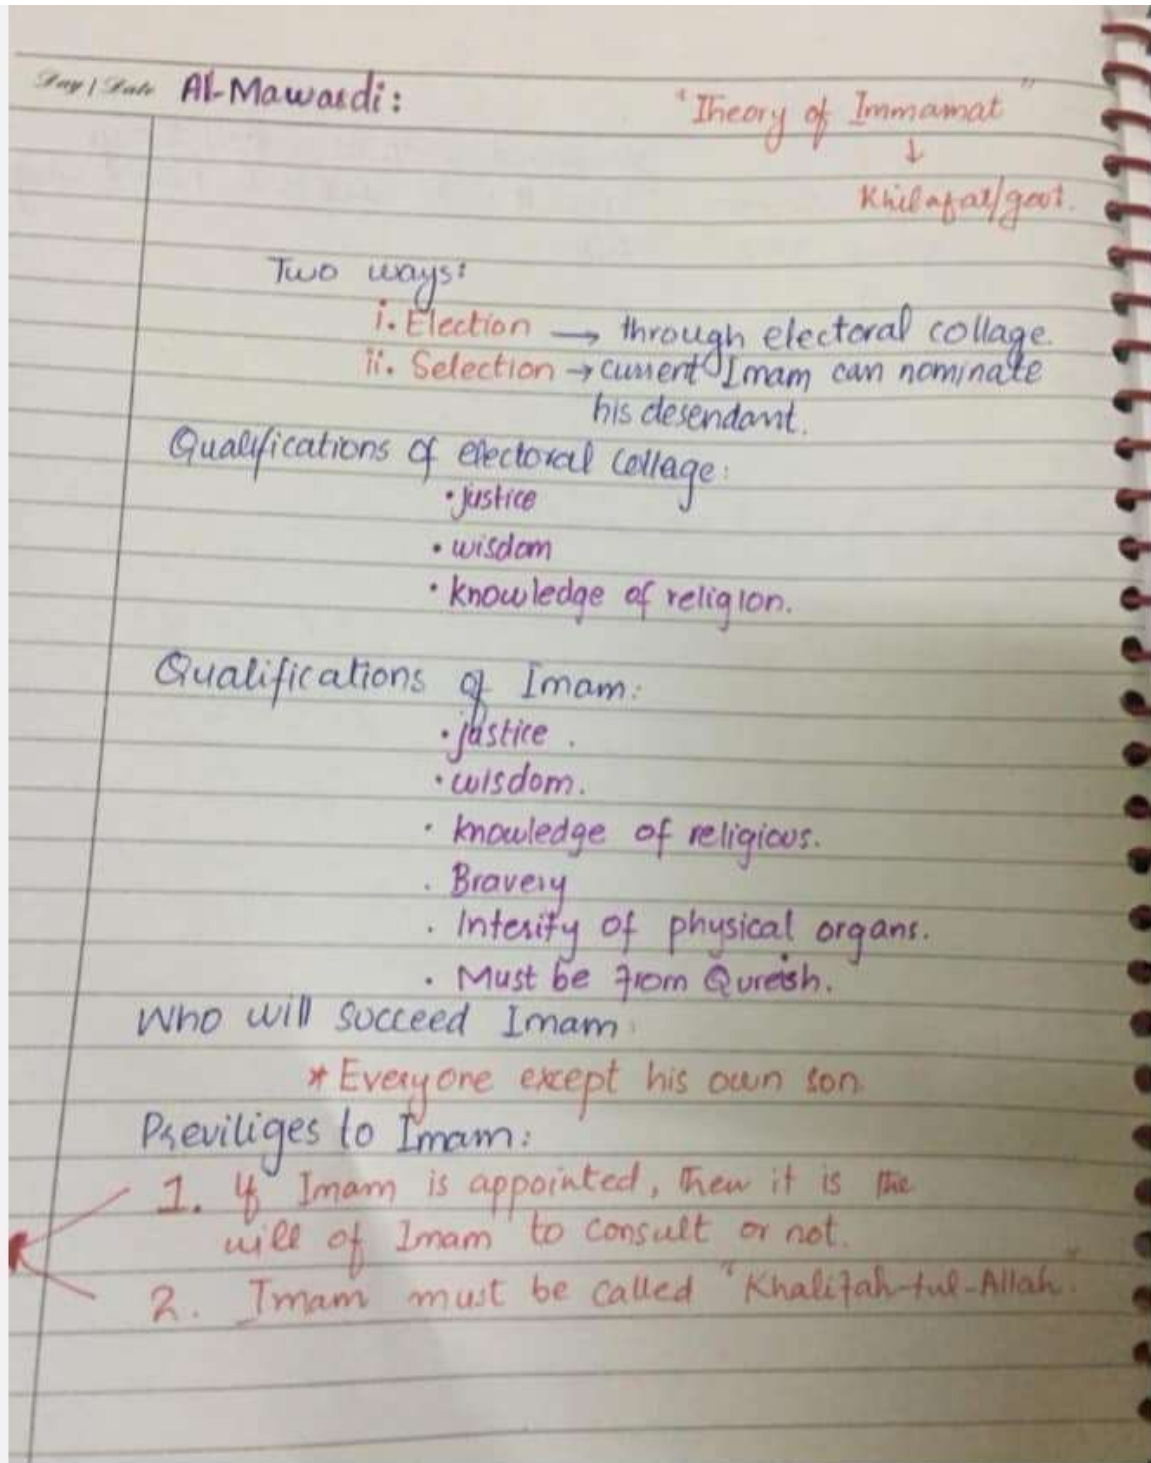 Day / Date Al-Mawardi:
"Theory of Immamat"
↓
Khilafat/govt.
Two ways:
i. Election → through electoral collage.
ii. Selection → current Imam can nominate
his desendant.
Qualifications of electoral collage:
• justice
• wisdom
• knowledge of religion.
Qualifications of Imam:
• justice.
• wisdom.
• knowledge of religious.
• Bravery
• Interity of physical organs.
• Must be from Qureish.
Who will succeed Imam:
* Everyone except his own son.
Previliges to Imam:
1. If Imam is appointed, then it is the
will of Imam to consult or not.
2. Imam must be called "Khalifah-tul-Allah".